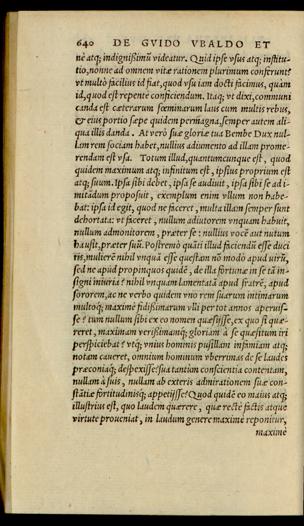 640 DE GVIDO VBALDO ET
nè atq; indignissimũ videatur. Quid ipse vsus atq; institu-
tio, nonne ad omnem vitæ rationem plurimum conferunt?
vt multò facilius id fiat, quod vsu iam docti facimus, quàm
id, quod est repentè conficiendum. Itaq; vt dixi, communi
canda est cæterarum fœminarum laus cum multis rebus,
& eius portio sæpe quidem permagna, semper autem ali-
qua illis danda. At verò suæ gloriæ tua Bembe Dux nul-
lam rem sociam habet, nullius adiumento ad illam prome-
rendam est vsa. Totum illud, quantumcunque est, quod
quidem maximum atq; infinitum est, ipsius proprium est
atq; suum. Ipsa sibi debet, ipsa se audiuit, ipsa sibi se ad i-
mitãdum proposuit, exemplum enim vllum non habe-
bat: ipsa id egit, quod ne faceret, multa illam semper sunt
dehortata: vt faceret, nullum adiutorem vnquam habuit,
nullum admonitorem, præter se: nullius vocẽ aut nutum
hausit, præter suũ. Postremò quàm illud faciendũ esse duci
ris, mulierẽ nihil vnquã esse questam nõ modò apud virũ,
sed ne apud propinquos quidẽ, de illa fortunæ in se tã in-
signi iniuria? nihil vnquam lamentatã apud fratrẽ, apud
sororem, ac ne verbo quidem vno rem suarum intimarum
multoq; maximè fidissimarum vlli per tot annos aperuis-
se? tum nullum sibi ex eo nomen quæsisse, ex quo si quæ-
reret, maximam verissimamq; gloriam à se quæsitum iri
perspiciebat? vtq; vnius hominis pusillam infamiam atq;
notam caueret, omnium hominum vberrimas de se laudes
præconiaq; despexisse: sua tantùm conscientia contentam,
nullam à suis, nullam ab exteris admirationem suæ con-
stãtiæ fortitudinisq; appetijsse? Quod quidẽ eo maius atq;
illustrius est, quo laudem quærere, quæ rectè factis atque
virtute proueniat, in laudum genere maximè reponitur,
maximè